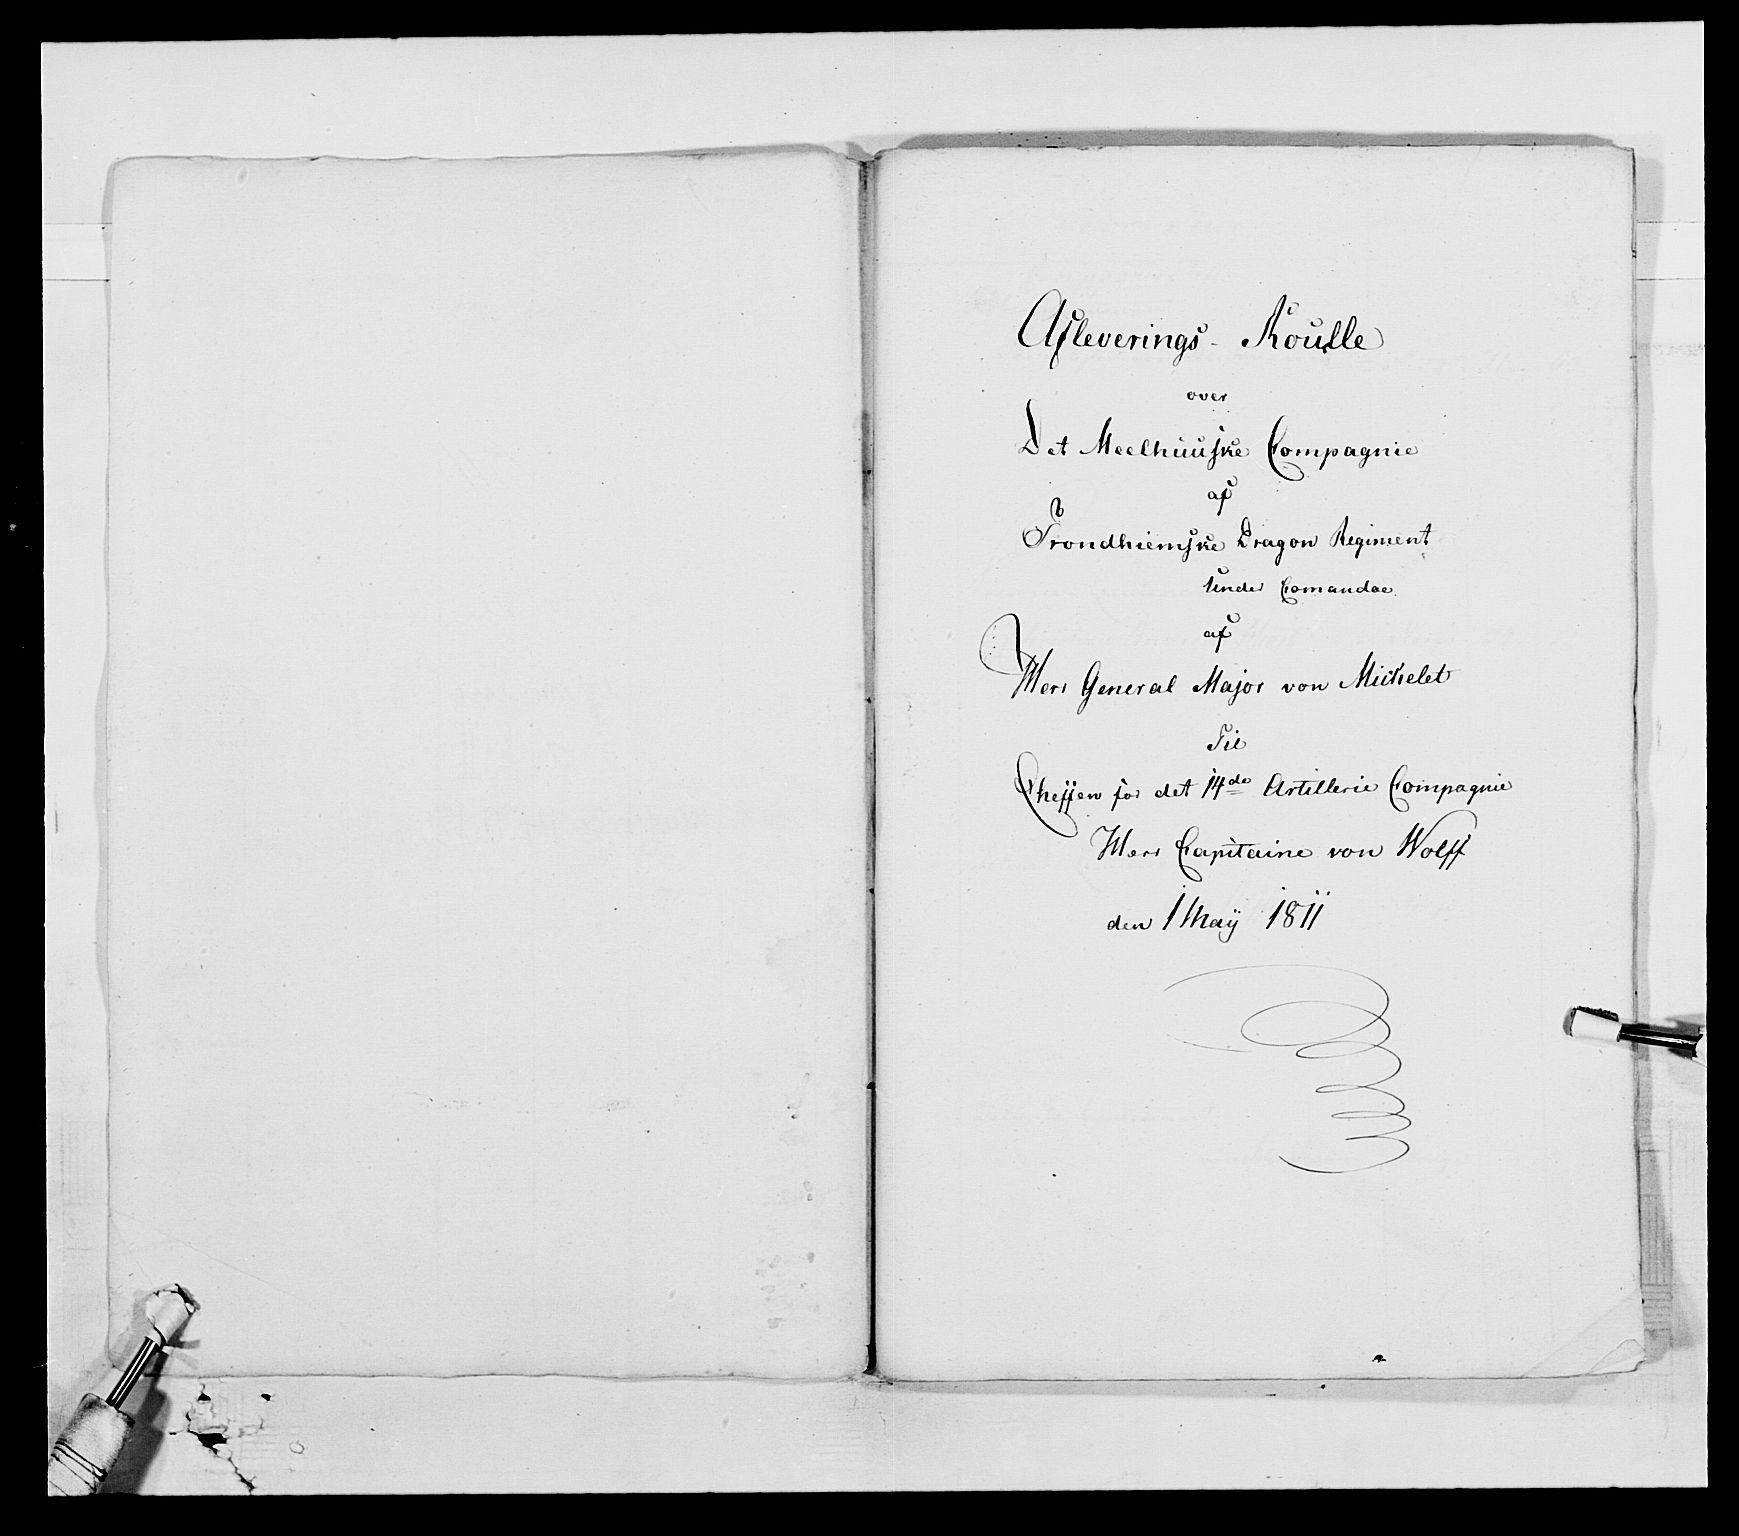 Afleverings- Roulle
over
Det Meelhuuske Compagnie
af
Trondhiemske Dragon Regiment
under Comandoe
af
Herr General Major von Michelet
Til
Cheffen for det 14de Artillerie Compagnie
Herr Capitaine von Wolff
den 1 Maÿ 1811